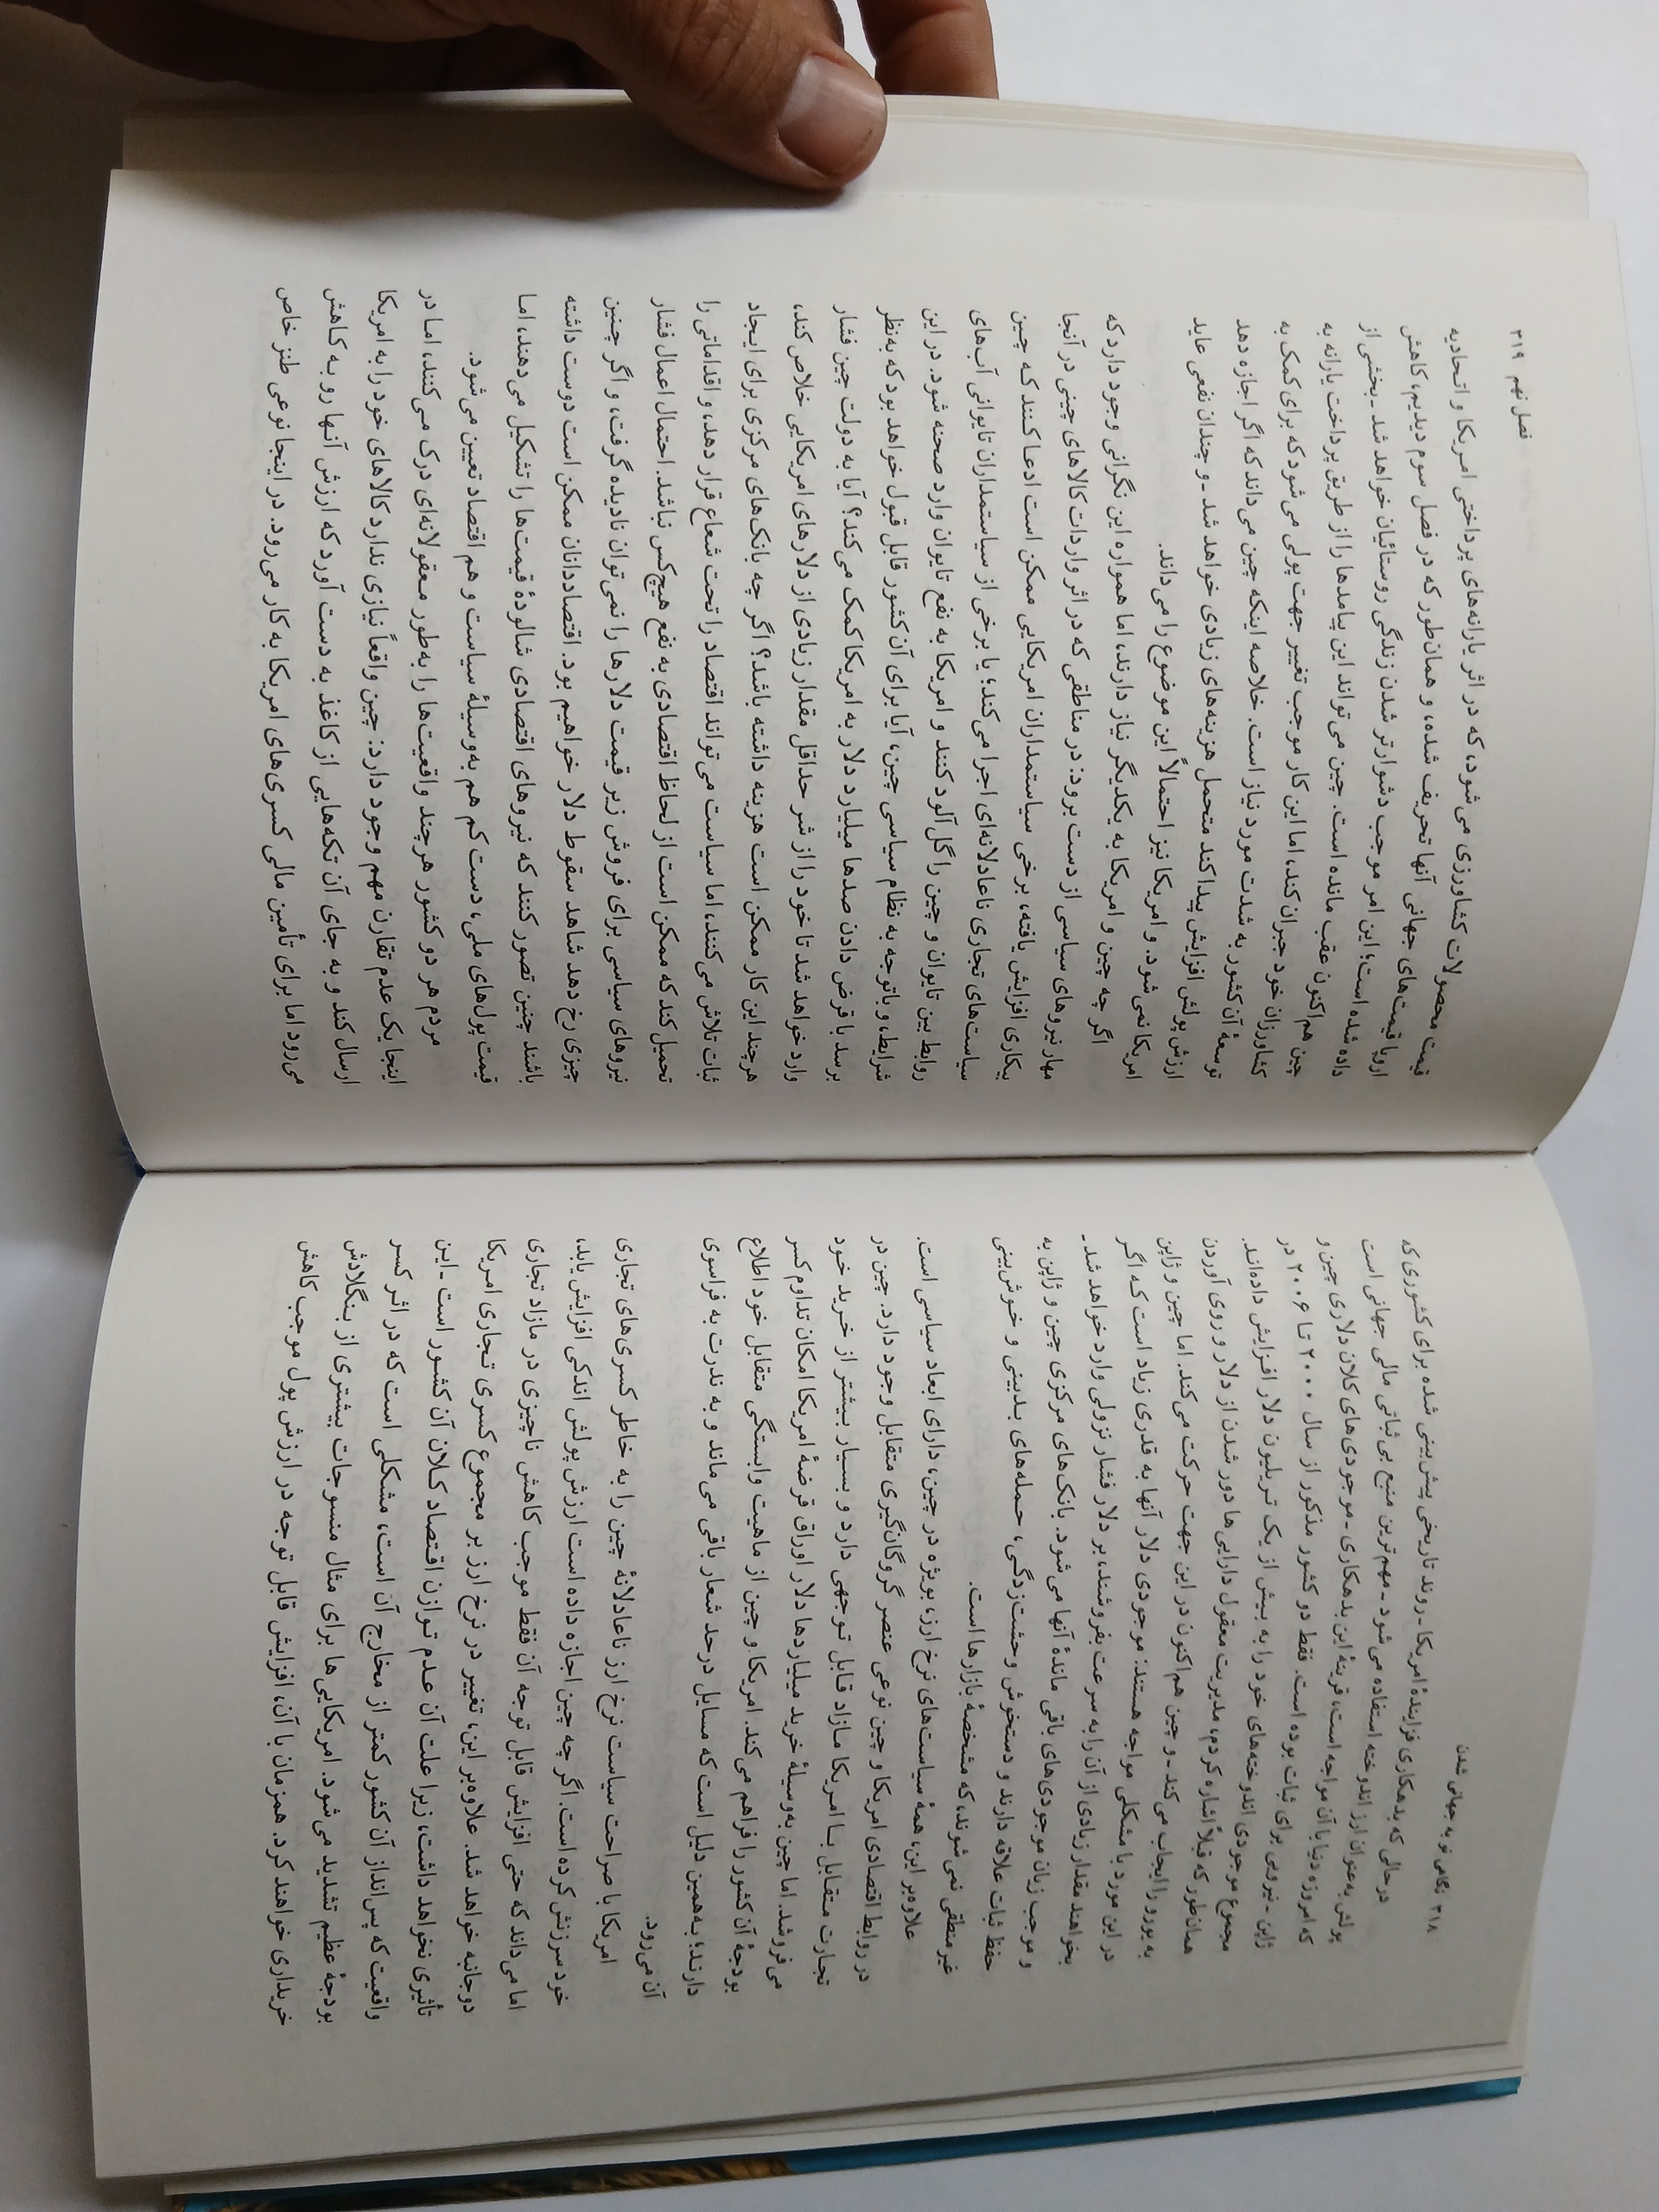 ۳۱۸ نگاهی نو به جهانی شدن
درحالی که بدهکاری فزایندهٔ امریکا ـ روند تاریخی پیش‌بینی شده برای کشوری که
پولش به‌عنوان ارز اندوخته استفاده می‌شود ـ مهم‌ترین منبع بی‌ثباتی مالی جهانی است
که امروزه دنیا با آن مواجه است، قرینهٔ این بدهکاری ـ موجودی‌های کلان دلاری چین و
ژاپن ـ نیرویی برای ثبات بوده است. فقط دو کشور مذکور از سال ۲۰۰۰ تا ۲۰۰۶ در
مجموع موجودی اندوخته‌های خود را به بیش از یک تریلیون دلار افزایش داده‌اند.
همان‌طور که قبلاً اشاره کردم، مدیریت معقول دارایی‌ها دور شدن از دلار و روی آوردن
به یورو را ایجاب می‌کند ـ و چین هم‌اکنون در این جهت حرکت می‌کند. اما چین و ژاپن
در این مورد با مشکلی مواجه هستند: موجودی دلار آنها به قدری زیاد است که اگر
بخواهند مقدار زیادی از آن را به سرعت بفروشند، بر دلار فشار نزولی وارد خواهد شد ـ
و موجب زیان موجودی‌های باقی ماندهٔ آنها می‌شود. بانک‌های مرکزی چین و ژاپن به
حفظ ثبات علاقه دارند و دستخوش وحشت‌زدگی، حمله‌های بدبینی و خوش‌بینی
غیرمنطقی نمی‌شوند، که مشخصهٔ بازارها است.
علاوه‌بر این، همهٔ سیاست‌های نرخ ارز، بویژه در چین، دارای ابعاد سیاسی است.
در روابط اقتصادی امریکا و چین نوعی عنصر گروگان‌گیری متقابل وجود دارد. چین در
تجارت متقابل با امریکا مازاد قابل توجهی دارد و بسیار بیشتر از خرید خود
می‌فروشد. اما چین به‌وسیلهٔ خرید میلیاردها دلار اوراق قرضهٔ امریکا امکان تداوم کسر
بودجهٔ آن کشور را فراهم می‌کند. امریکا و چین از ماهیت وابستگی متقابل خود اطلاع
دارند؛ به‌همین دلیل است که مسایل درحد شعار باقی می‌ماند و به ندرت به فراسوی
آن می‌رود.
امریکا با صراحت سیاست نرخ ارز ناعادلانهٔ چین را به خاطر کسری‌های تجاری
خود سرزنش کرده است. اگر چه چین اجازه داده است ارزش پولش اندکی افزایش یابد،
اما می‌داند که حتی افزایش قابل توجه آن فقط موجب کاهش ناچیزی در مازاد تجاری
دوجانبه خواهد شد. علاوه‌بر این، تغییر در نرخ ارز بر مجموع کسری تجاری امریکا
تأثیری نخواهد داشت، زیرا علت آن عدم توازن اقتصاد کلان آن کشور است ـ این
واقعیت که پس‌انداز آن کشور کمتر از مخارج آن است، مشکلی است که در اثر کسر
بودجهٔ عظیم تشدید می‌شود. امریکایی‌ها برای مثال منسوجات بیشتری از بنگلادش
خریداری خواهند کرد. همزمان با آن، افزایش قابل توجه در ارزش پول موجب کاهش
فصل نهم ۳۱۹
قیمت محصولات کشاورزی می‌شود، که در اثر یارانه‌های پرداختی امریکا و اتحادیه
اروپا قیمت‌های جهانی آنها تحریف شده، و همان‌طور که در فصل سوم دیدیم، کاهش
داده شده است؛ این امر موجب دشوارتر شدن زندگی روستائیان خواهد شد ـ بخشی از
چین هم‌اکنون عقب مانده است. چین می‌تواند این پیامدها را از طریق پرداخت یارانه به
کشاورزان خود جبران کند، اما این کار موجب تغییر جهت پولی می‌شود که برای کمک به
توسعهٔ آن کشور به شدت مورد نیاز است. خلاصه اینکه چین می‌داند که اگر اجازه دهد
ارزش پولش افزایش پیدا کند متحمل هزینه‌های زیادی خواهد شد ـ و چندان نفعی عاید
امریکا نمی‌شود. و امریکا نیز احتمالاً این موضوع را می‌داند.
اگر چه چین و امریکا به یکدیگر نیاز دارند، اما همواره این نگرانی وجود دارد که
مهار نیروهای سیاسی از دست برود: در مناطقی که در اثر واردات کالاهای چینی در آنجا
بیکاری افزایش یافته، برخی سیاستمداران امریکایی ممکن است ادعا کنند که چین
سیاست‌های تجاری ناعادلانه‌ای اجرا می‌کند؛ یا برخی از سیاستمداران تایوانی آب‌های
روابط بین تایوان و چین را گل‌آلود کنند و امریکا به نفع تایوان وارد صحنه شود. در این
شرایط، و باتوجه به نظام سیاسی چین، آیا برای آن کشور قابل قبول خواهد بود که به‌نظر
برسد با قرض دادن صدها میلیارد دلار به امریکا کمک می‌کند؟ آیا به دولت چین فشار
وارد خواهد شد تا خود را از شر حداقل مقدار زیادی از دلارهای امریکایی خلاص کند،
هرچند این کار ممکن است هزینه داشته باشد؟ اگر چه بانک‌های مرکزی برای ایجاد
ثبات تلاش می‌کنند، اما سیاست می‌تواند اقتصاد را تحت شعاع قرار دهد، و اقداماتی را
تحمیل کند که ممکن است از لحاظ اقتصادی به نفع هیچ‌کس نباشد. احتمال اعمال فشار
نیروهای سیاسی برای فروش زیر قیمت دلارها را نمی‌توان نادیده گرفت، و اگر چنین
چیزی رخ دهد شاهد سقوط دلار خواهیم بود. اقتصاددانان ممکن است دوست داشته
باشند چنین تصور کنند که نیروهای اقتصادی شالودهٔ قیمت‌ها را تشکیل می‌دهند، اما
قیمت پول‌های ملی، دست کم هم به‌وسیلهٔ سیاست و هم اقتصاد تعیین می‌شود.
مردم هر دو کشور هرچند واقعیت‌ها را به‌طور معقولانه‌ای درک می‌کنند، اما در
اینجا یک عدم تقارن مهم وجود دارد: چین واقعاً نیازی ندارد کالاهای خود را به امریکا
ارسال کند و به جای آن تکه‌هایی از کاغذ به دست آورد که ارزش آنها رو به کاهش
می‌رود اما برای تأمین مالی کسری‌های امریکا به کار می‌رود. در اینجا نوعی طنز خاص